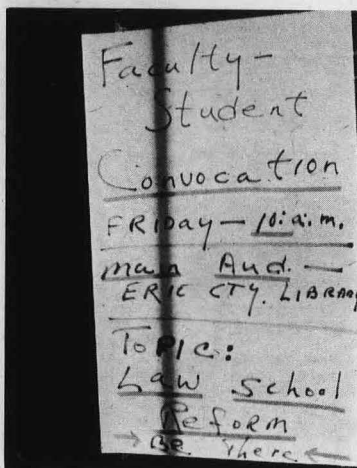 Faculty-
Student
Convocation
FRIDay — 10: a.m.
main Aud. —
ERIE CTY. LIBRARY
TOPIC:
Law School
Reform
→ Be There ←